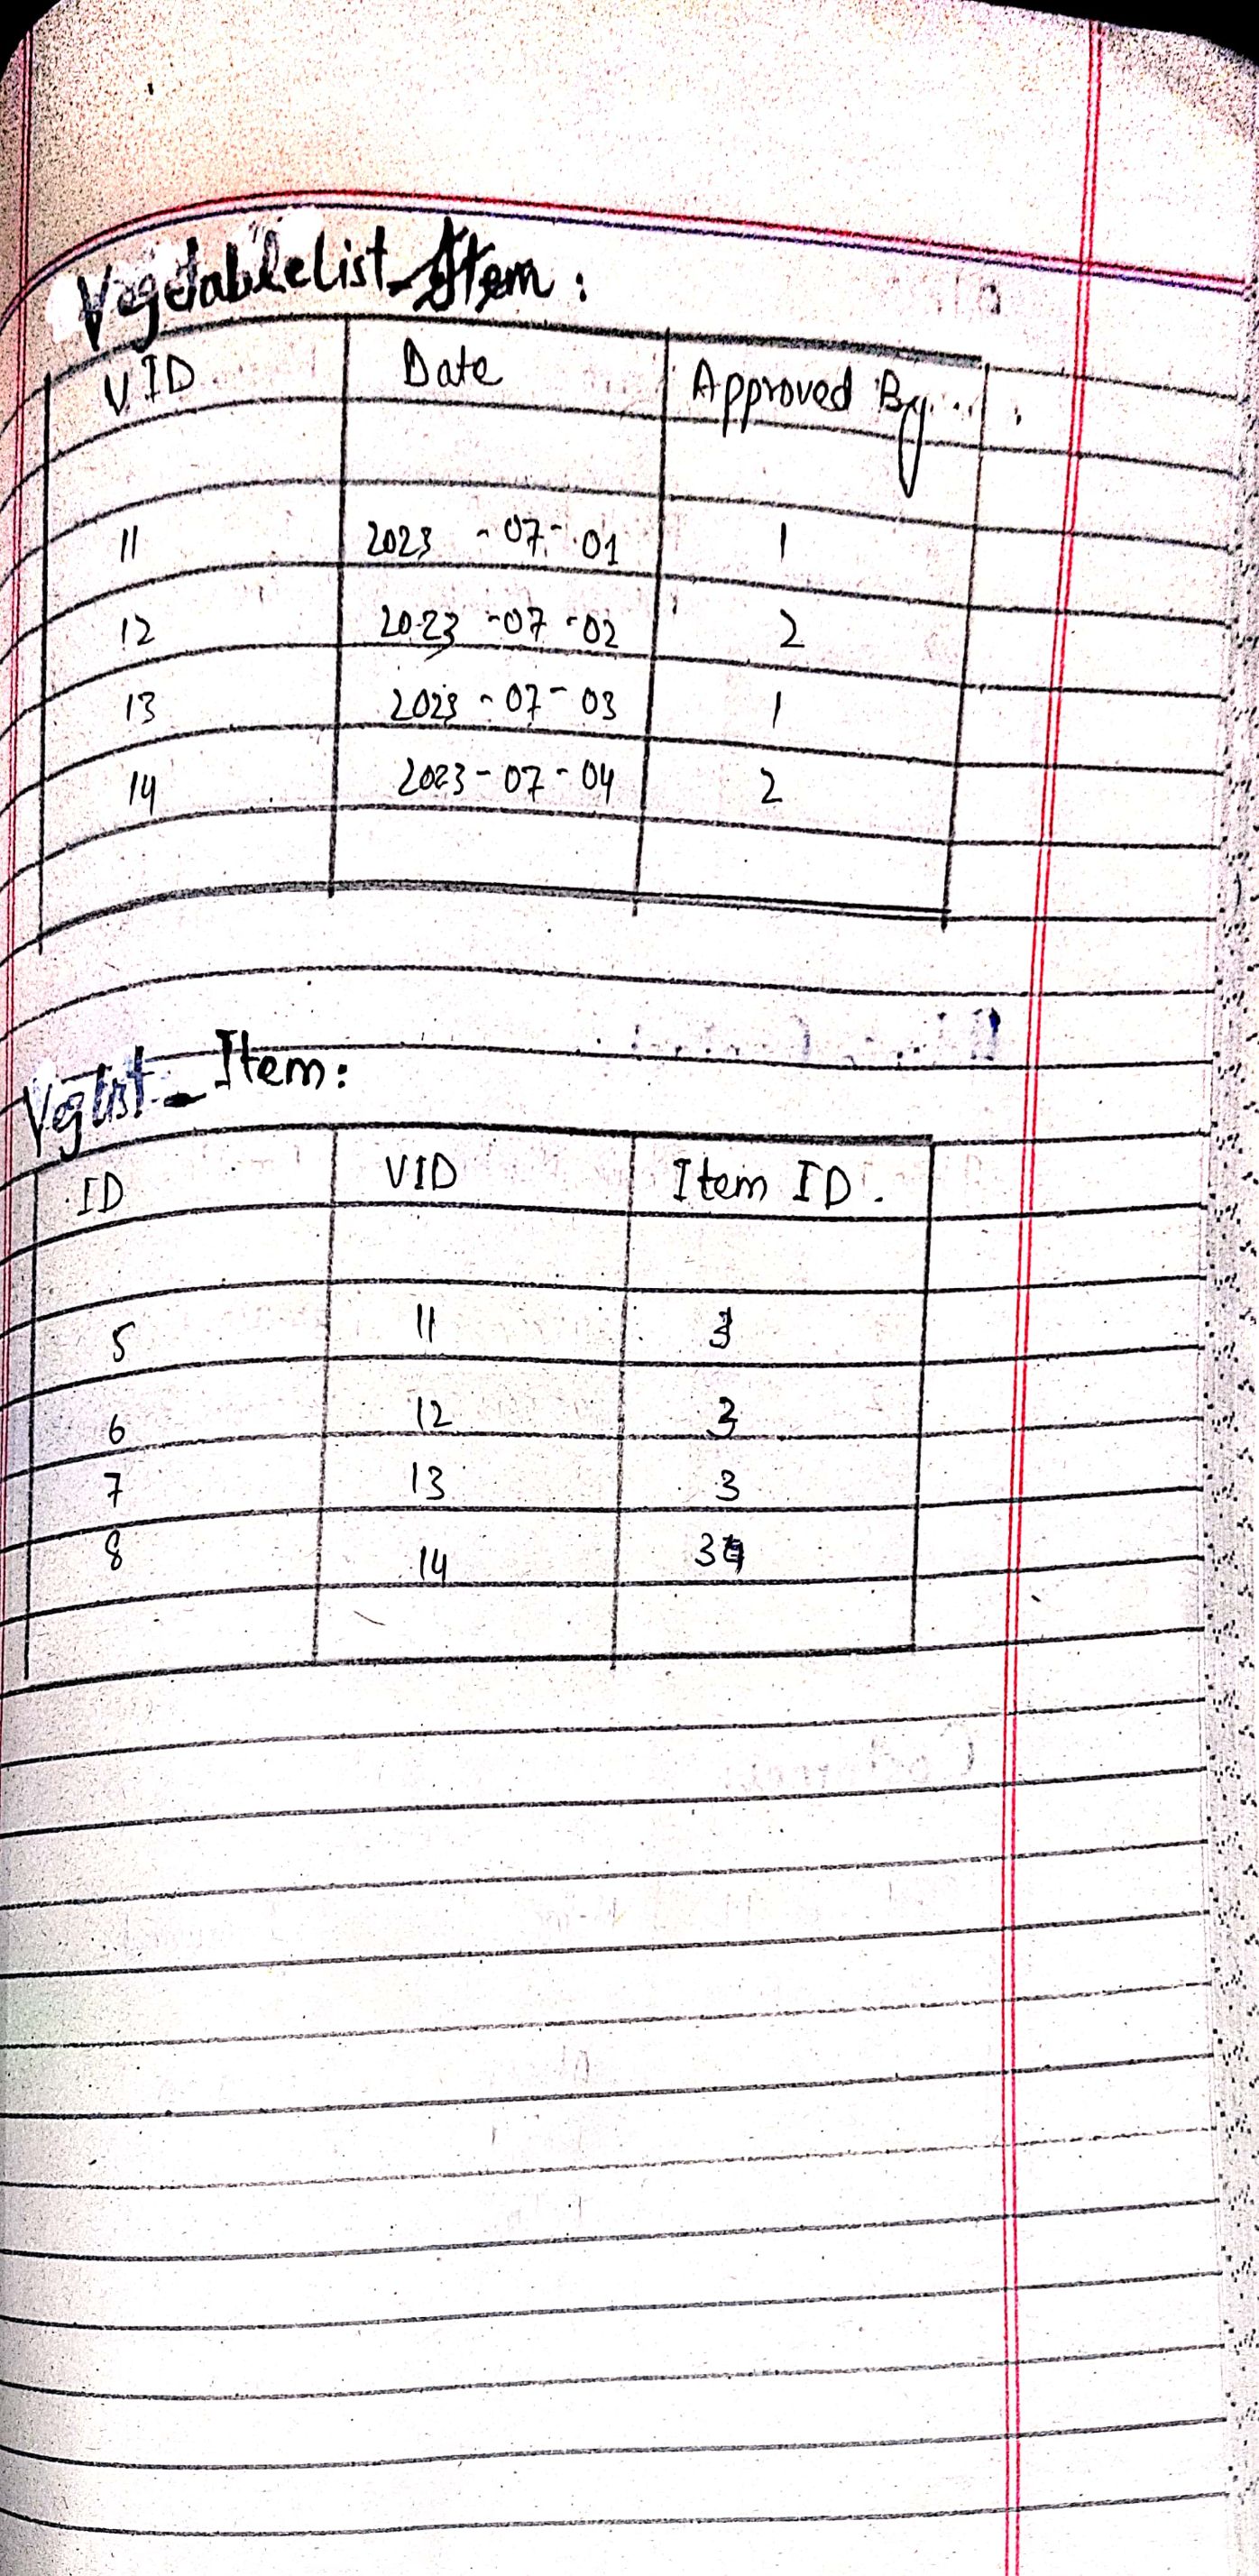 Vegetablelist_Item:
VID Date Approved By
11 2023-07-01 1
12 2023-07-02 2
13 2023-07-03 1
14 2023-07-04 2
Veglist_Item:
ID VID Item ID.
5 11 3
6 12 3
7 13 3
8 14 3